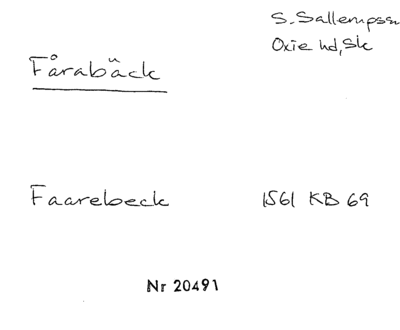 S. Sallerupssn
Oxie hd, Sk
Fårabäck
Faarebeck 1561 KB 69
Nr 20491